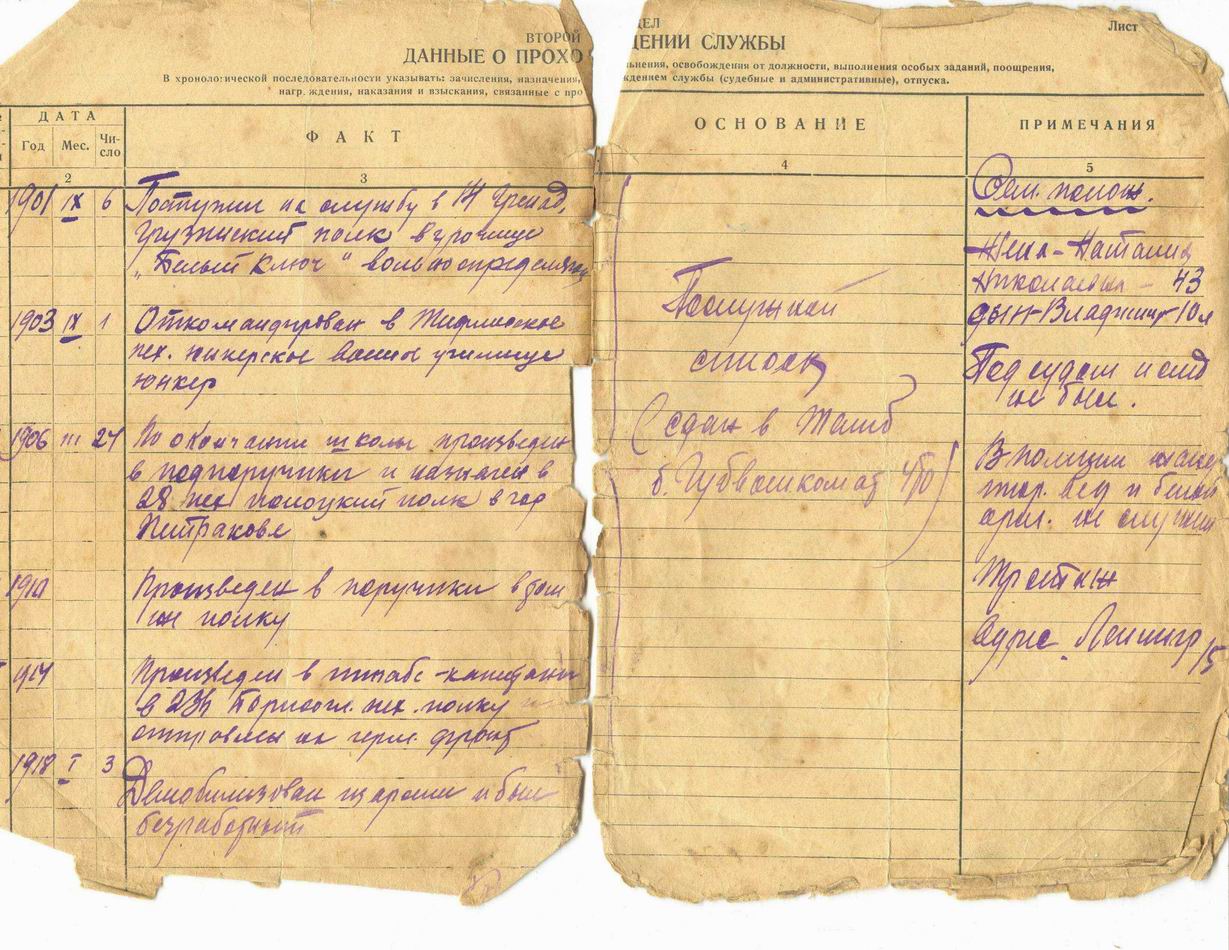 ВТОРОЙ
ДЕЛ
Лист
ДАННЫЕ О ПРОХО
ДЕНИИ СЛУЖБЫ
В хронологической последовательности указывать: зачисления, назначения,
льнения, освобождения от должности, выполнения особых заданий, поощрения,
награждения, наказания и взыскания, связанные с про
ждением службы (судебные и административные), отпуска.
ДАТА
Год
Мес.
Чи-
сло
ФАКТ
ОСНОВАНИЕ
ПРИМЕЧАНИЯ
2
3
4
5
1901 IX 6 Поступил на службу в 14 Гренад.
Грузинский полк в урочище
"Белый Ключ" вольноопределяющ
1903 IX 1 Откомандирован в Тифлисское
пех. юнкерское военное училище
юнкер
1906 III 24 По окончании школы произведен
в подпоручики и назначен в
28 пех полоцкий полк в гор
Петракове
1910 Произведен в поручики в том
же полку
1914 Произведен в штабс-капитаны
в Борисогл. пех. полку
отправлен на герм. фронт
1918 I 3 Демобилизован из армии и был
безработный
Послужной
список
(сдан в
б. Губвоенкомат
Сем. полож.
Жена - Наталия
Николаевна - 43
сын - Владимир 10 л
Под судом и след
не был.
В полиции
и белой
арм. не служил
Адрес Ленингр